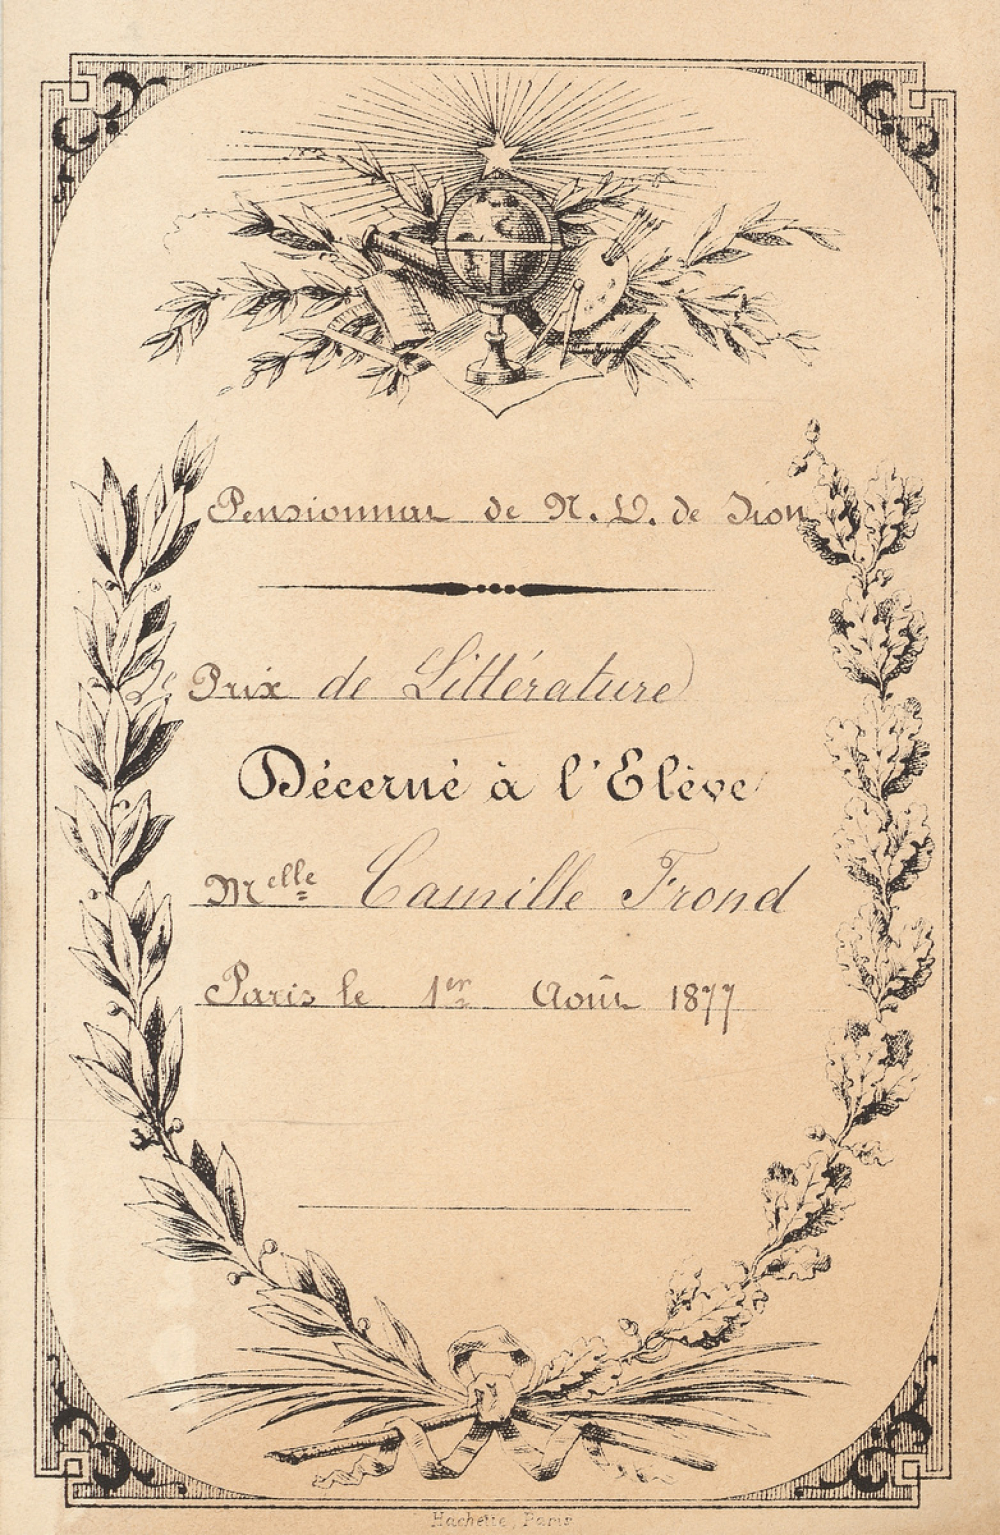 Pensionnat de N. D. de Sion
2e Prix de Littérature
Décerné à l'Elève
Melle Camille Frond
Paris le 1er Août 1877
Hachette, Paris